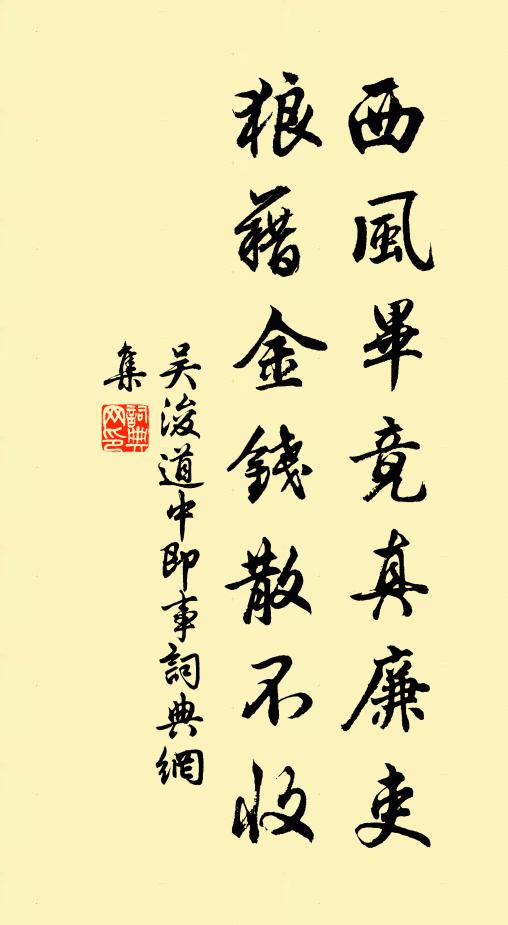 西風畢竟真廉吏
狼藉金錢散不收
吴浚道中即事詞典網
集
詞典网印